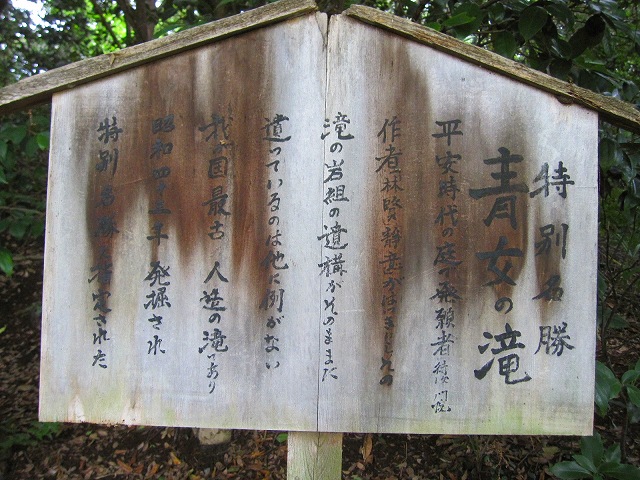 特別名勝
青女の滝
平安時代の庭で発願者待賢門院
作者 林賢 静意が仕事をしその
滝の岩組の遺構がそのまま
遺っているのは他に例がない
我国最古 人造の滝であり
昭和四十五年 発掘され
特別名勝に指定された